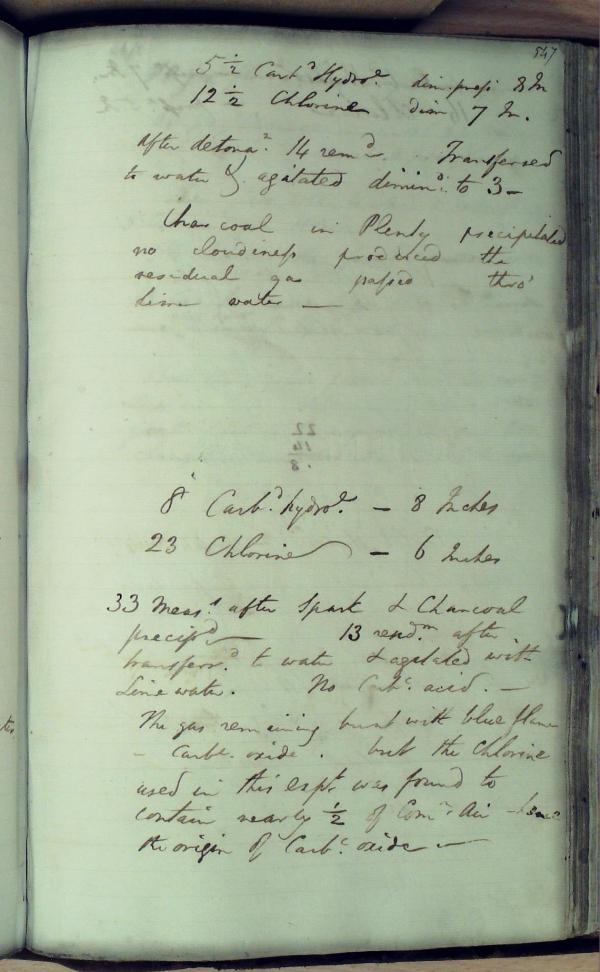 547
5 1/2 Carbd Hydroe dim. press 8 In
12 1/2 Chlorine dim 7 In.
After detonan. 14 remd Transferred
to water & agitated dimind. to 3 —
Charcoal in Plenty precipitated
no cloudiness produced the
residual gas passed thro'
Lime water —
22
14
8
8 Carbd. hydroe. — 8 Inches
23 Chlorine — 6 Inches
33 Meass after Spark & Charcoal
precipd — 13 resdm after
transferrd to water & agitated with
Lime water. No Carbc. acid. —
The gas remaining burnt with blue flame
– Carbc. oxide. but the Chlorine
used in this expt was found to
contain nearly 1/2 of Comn Air – hence
the origin of Carbc. oxide —